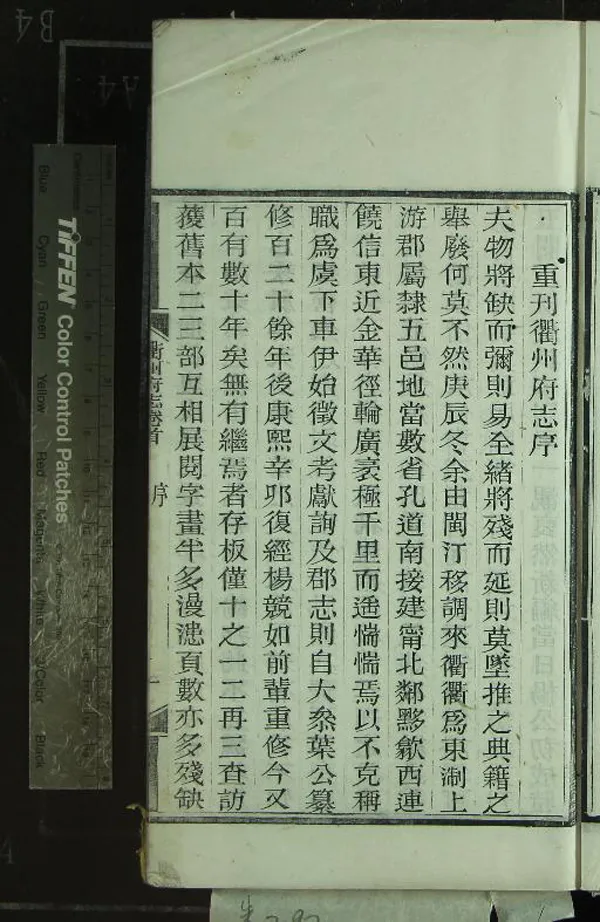 重刊衢州府志序
夫物將缺而彌則易全緒將殘而延則莫墜推之典籍之
舉廢何莫不然庚辰冬余由閩汀移調來衢衢為東淛上
游郡屬隸五邑地當數省孔道南接建甯北鄰黟歙西連
饒信東近金華徑輪廣袤極千里而遙惴惴焉以不克稱
職為虞下車伊始徵文考獻詢及郡志則自大叅葉公纂
修百二十餘年後康熙辛卯復經楊競如前輩重修今又
百有數十年矣無有繼焉者存板僅十之一二再三查訪
蒦舊本二三部互相展閱字畫半多漫漶頁數亦多殘缺
衢州府志卷首
序
一
TIFFEN Color Control Patches
Blue
Cyan
Green
Yellow
Red
Magenta
White
3/Color
Black
B4
A4